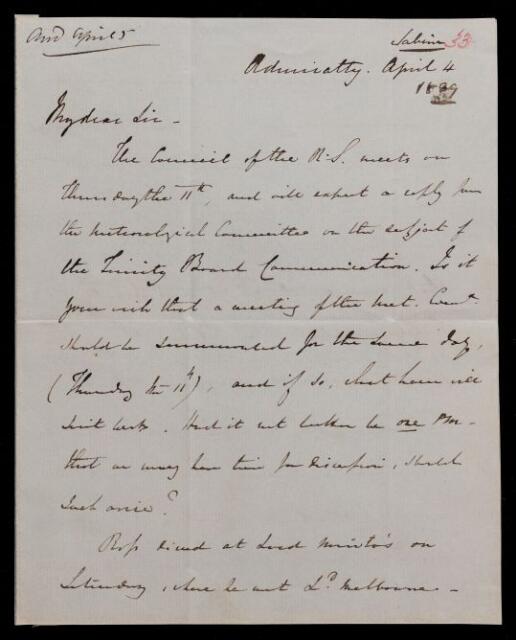 And April 5
Sabine 33
Admiralty. April 4
1839
My dear Sir -
The Council of the R.S. meets on
Thursday the 11th, and will expect a reply from
the Meteorological Committee on the subject of
the Trinity Board Communication. Is it
your wish that a meeting of the Met. Comee.
should be summoned for the same day,
(Thursday the 11th), and if so, what hour will
suit best. Had it not better be one P.M.
that we may have time for discussion, should
such arise?
Ross dined at Lord Minto's on
Saturday, where he met Ld. Melbourne -